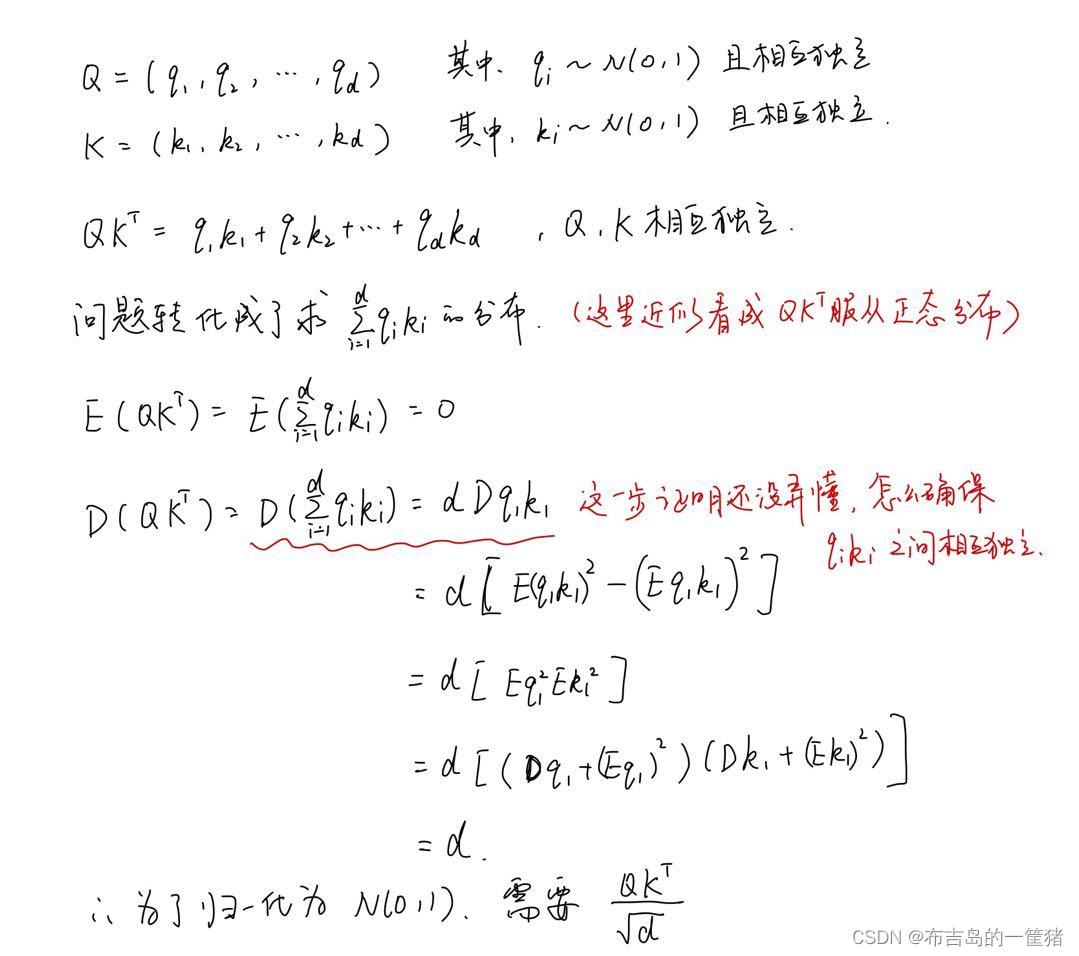 Q = (q₁, q₂, ⋯, q_d)  其中, qᵢ ~ N(0,1) 且相互独立
K = (k₁, k₂, ⋯, k_d)  其中, kᵢ ~ N(0,1) 且相互独立.
QKᵀ = q₁k₁ + q₂k₂ + ⋯ + q_dk_d , Q, K 相互独立.
问题转化成了求 ∑_{i=1}^{d} qᵢkᵢ 的分布. (这里近似看成 QKᵀ 服从正态分布)
E(QKᵀ) = E(∑_{i=1}^{d} qᵢkᵢ) = 0
D(QKᵀ) = D(∑_{i=1}^{d} qᵢkᵢ) = d D q₁k₁ 这一步证明还没弄懂, 怎么确保
qᵢkᵢ 之间相互独立.
= d [E(q₁k₁)² − (E q₁k₁)²]
= d [E q₁² E k₁²]
= d [(D q₁ + (E q₁)²)(D k₁ + (E k₁)²)]
= d.
∴ 为了归一化为 N(0,1). 需要 QKᵀ/√d
CSDN @布吉岛的一筐猪